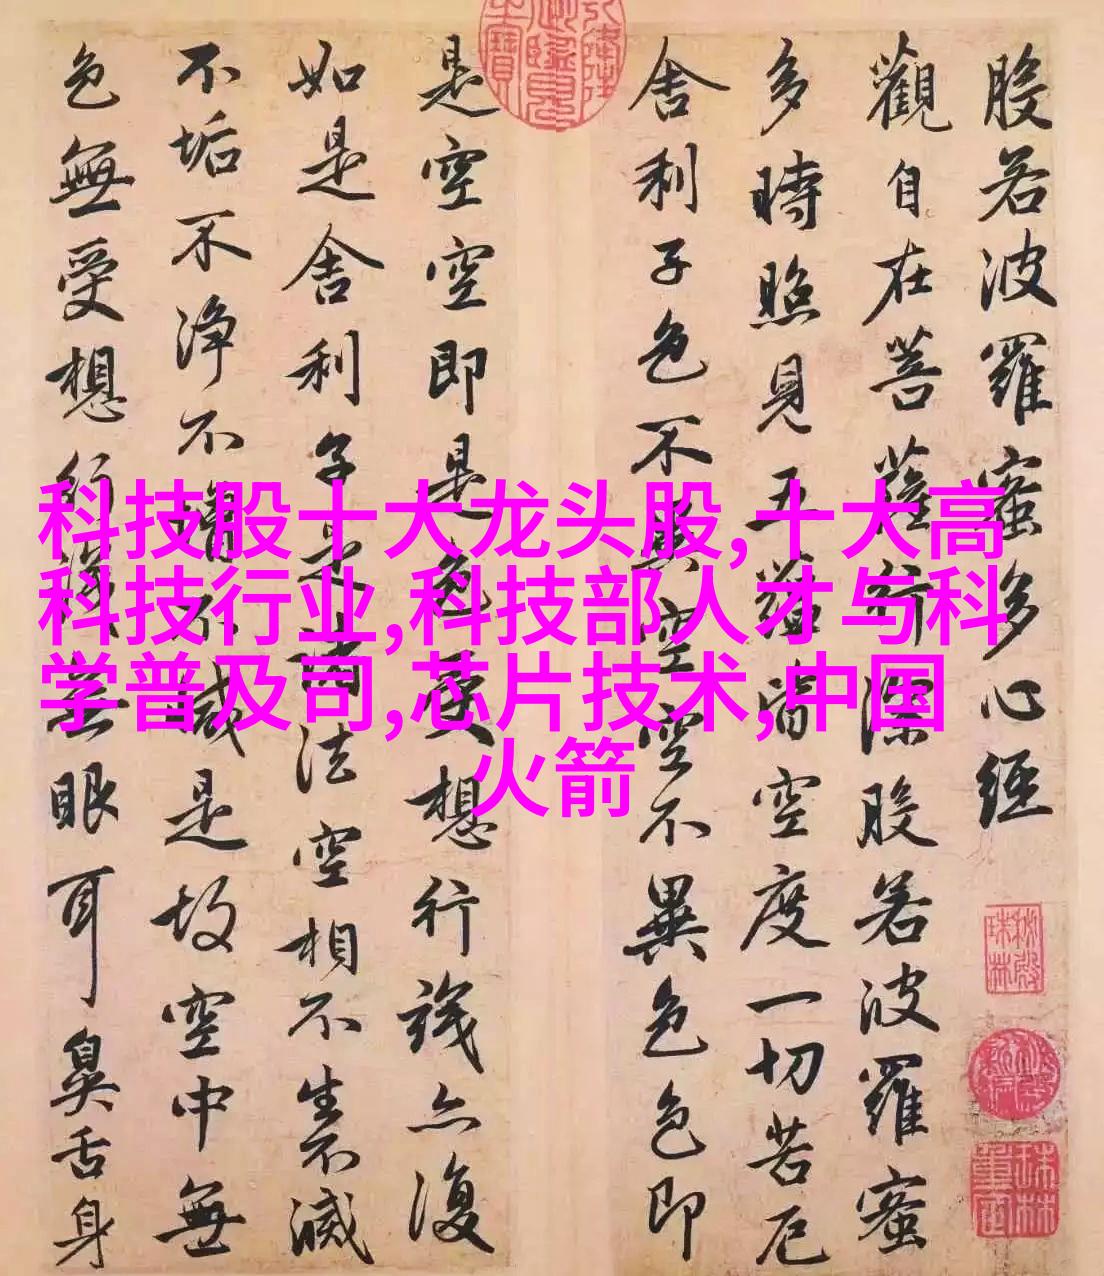 科技股十大龙头股,十大高
科技行业,科技部人才与科
学普及司,芯片技术,中国
火箭
般若波羅蜜多心經
觀自在菩薩行深般若波羅蜜
多時照見五蘊皆空度一切苦厄
舍利子色不異空空不異色色即
是空空即是色受想行識亦復
如是舍利子是諸法空相不生不滅
不垢不净不增不減是故空中無
色無受想行識無眼耳鼻舌身